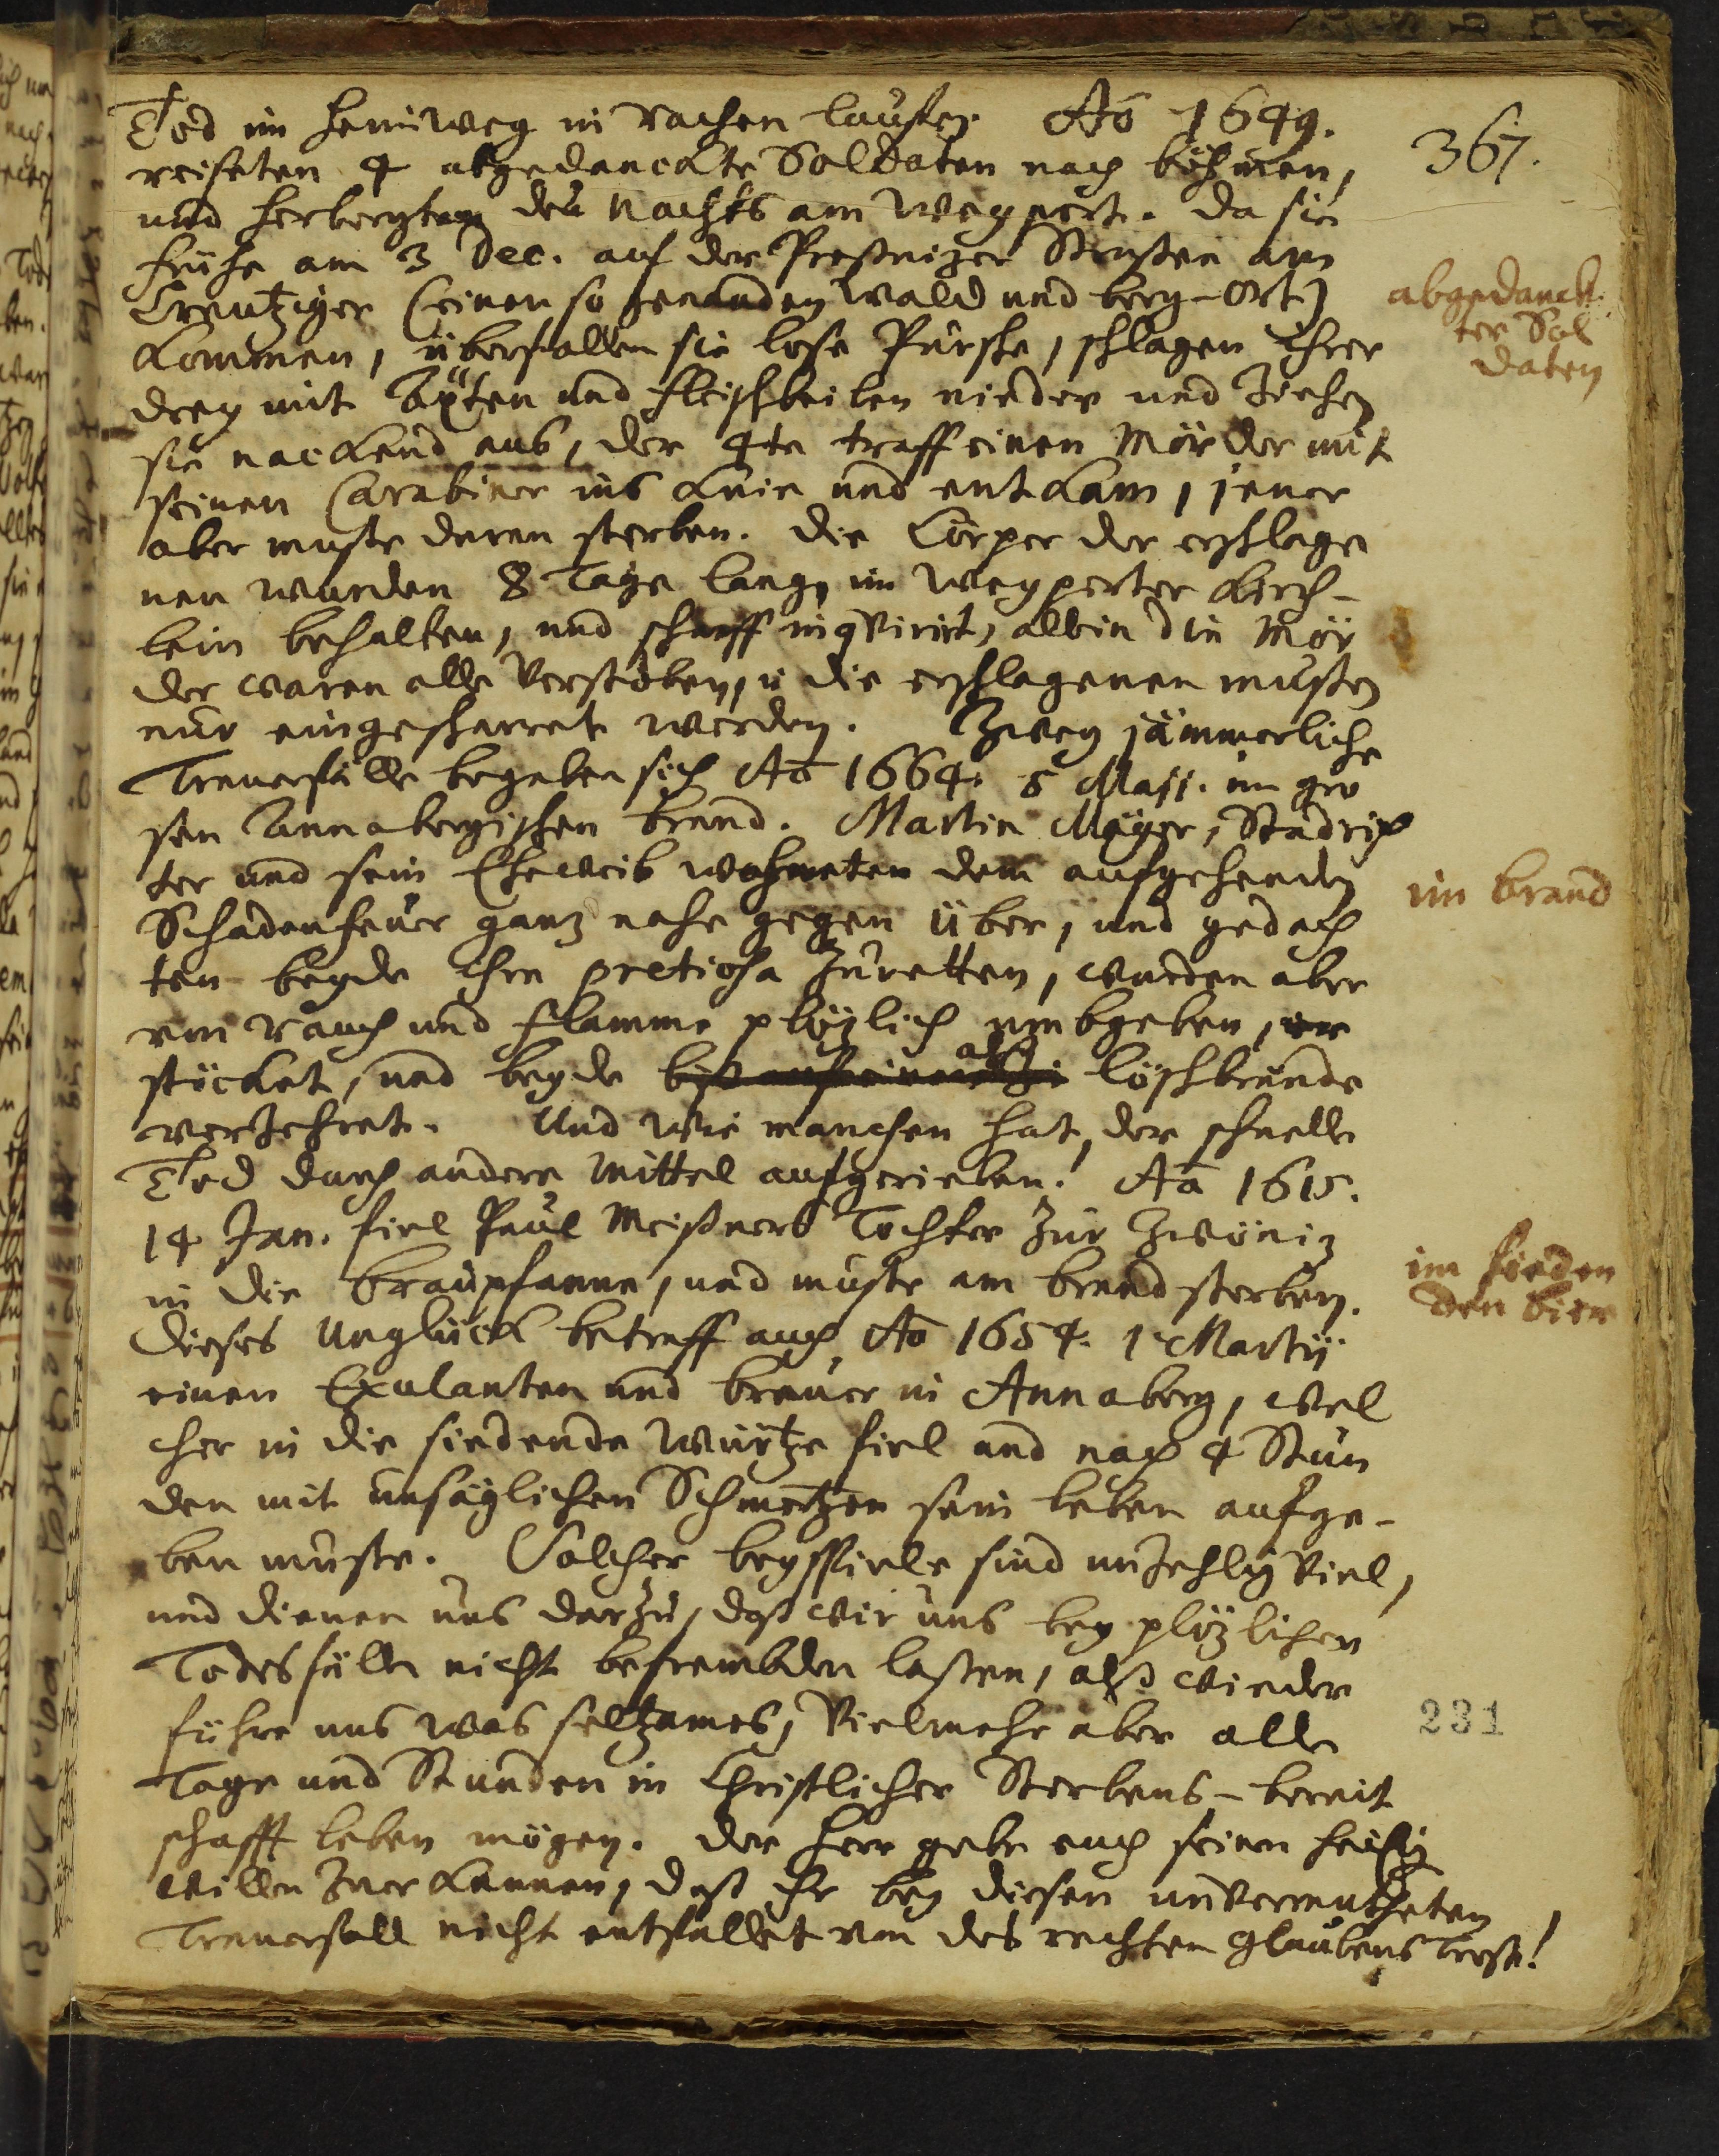 367.
Tod im heimweg in Rachen lauffen. Aō 1649.
reiseten 4 abgedanckte Soldaten nach böhmen,
und herbergten des Nachts am Weypert. Da sie
frühe am 3 Dec. auf der Preßnizer Straßen am
Creutziger (einen so genanden Wald und berg-Ort)
kommen, überfallen sie lose Pursche, schlagen Ihrer
drey mit Äxten und fleischbeilen nieder und Ziehen
sie nackend aus, der 4te traff einen Mörder mit
seinen Carabiner ins knie und entkam, jener
aber muste daran sterben. Die Cörper der erschlage
nen wurden 8 Tage lang, im Weyperter kirch-
lein behalten, und scharff inqvirirt, allein die Mör
der waren alle Verstoben, u die erschlagenen musten
nur eingescharret werden. Zwey jämmerliche
Trauerfälle begeben sich Aō 1664. 5 Maji. im gro
sen Annabergischen brand. Martin Mäyer, Stadrich
ter und sein Eheweib wohneten dem aufgehenden
Schadenfeuer ganz nahe gegen über, und gedach
ten beyde Ihre pretiosa Zuretten, wurden aber
von Rauch und flamme plözlich umbgeben, er
stöcket, und beyde als löschbrände
verzehret. Und wie manchen hat der schnelle
Tod durch andere Mittel aufgerieben! Aō 1615.
14 Jan. fiel Paul Meißners Tochter Zur Zwöniz
in die braupfanne, und muste am brand sterben.
Dieses Unglück betraff auch Aō 1654. 1 Martij
einen Exulanten und breuer in Annaberg, wel
cher in die siedende Würtze fiel und nach 4 Stun
den mit unsäglichen Schmertzen sein leben aufge-
ben muste. Solcher beyspiele sind unzehlig Viel,
und dienen uns darzu, daß wir uns bey plözlichen
Todesfällen nicht befrembden laßen, alß wieder
führe uns was seltzames, Vielmehr aber alle
Tage und Stunden in Christlicher Sterbens-bereit
schafft leben mögen. Der Herr gebe euch seinen heilig
willen Zuerkennen, daß Ihr bey diesen unvermutheten
Trauerfall nicht entfallet von des rechten glaubens Trost!
abgedanck
ter Sol
daten
im brand
im sieden
den bier
231